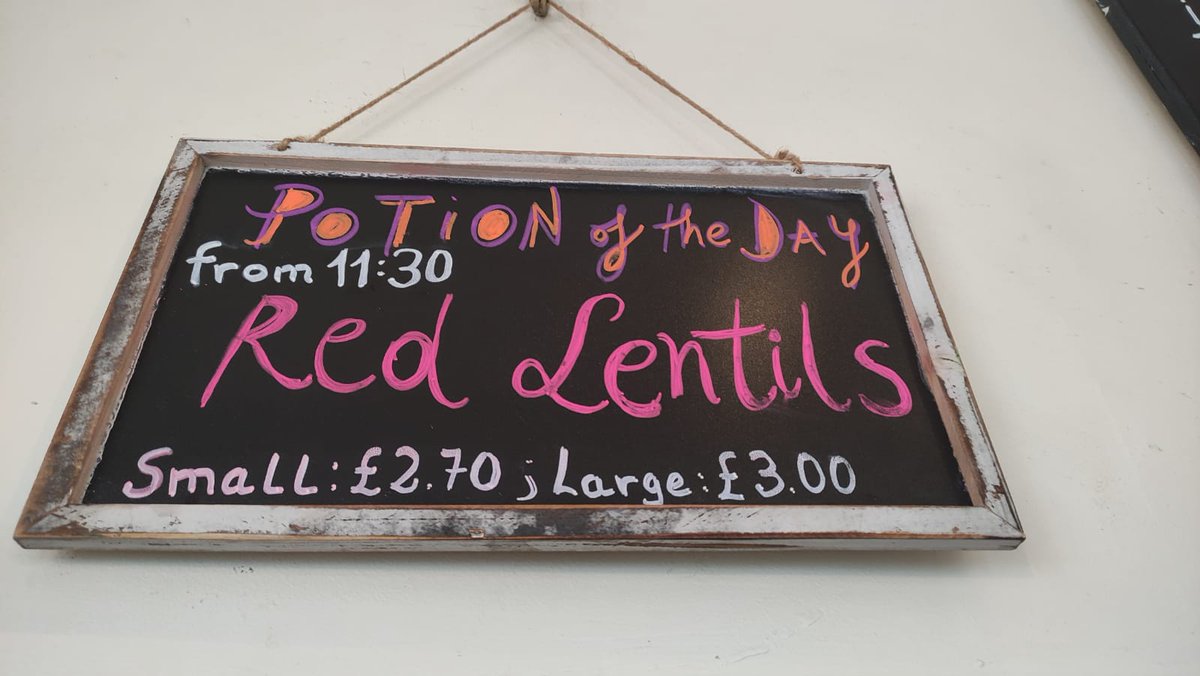 POTION of the DAY
from 11:30
Red Lentils
Small: £2.70 ; Large: £3.00